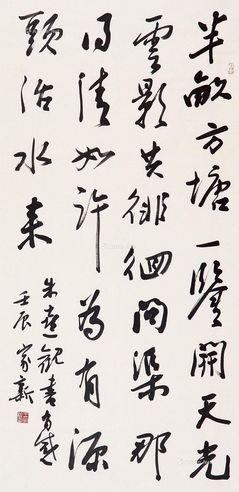 半畝方塘一鑒開天光
雲影共徘徊問渠那
得清如許為有源
頭活水來
朱熹觀書有感
壬辰家新